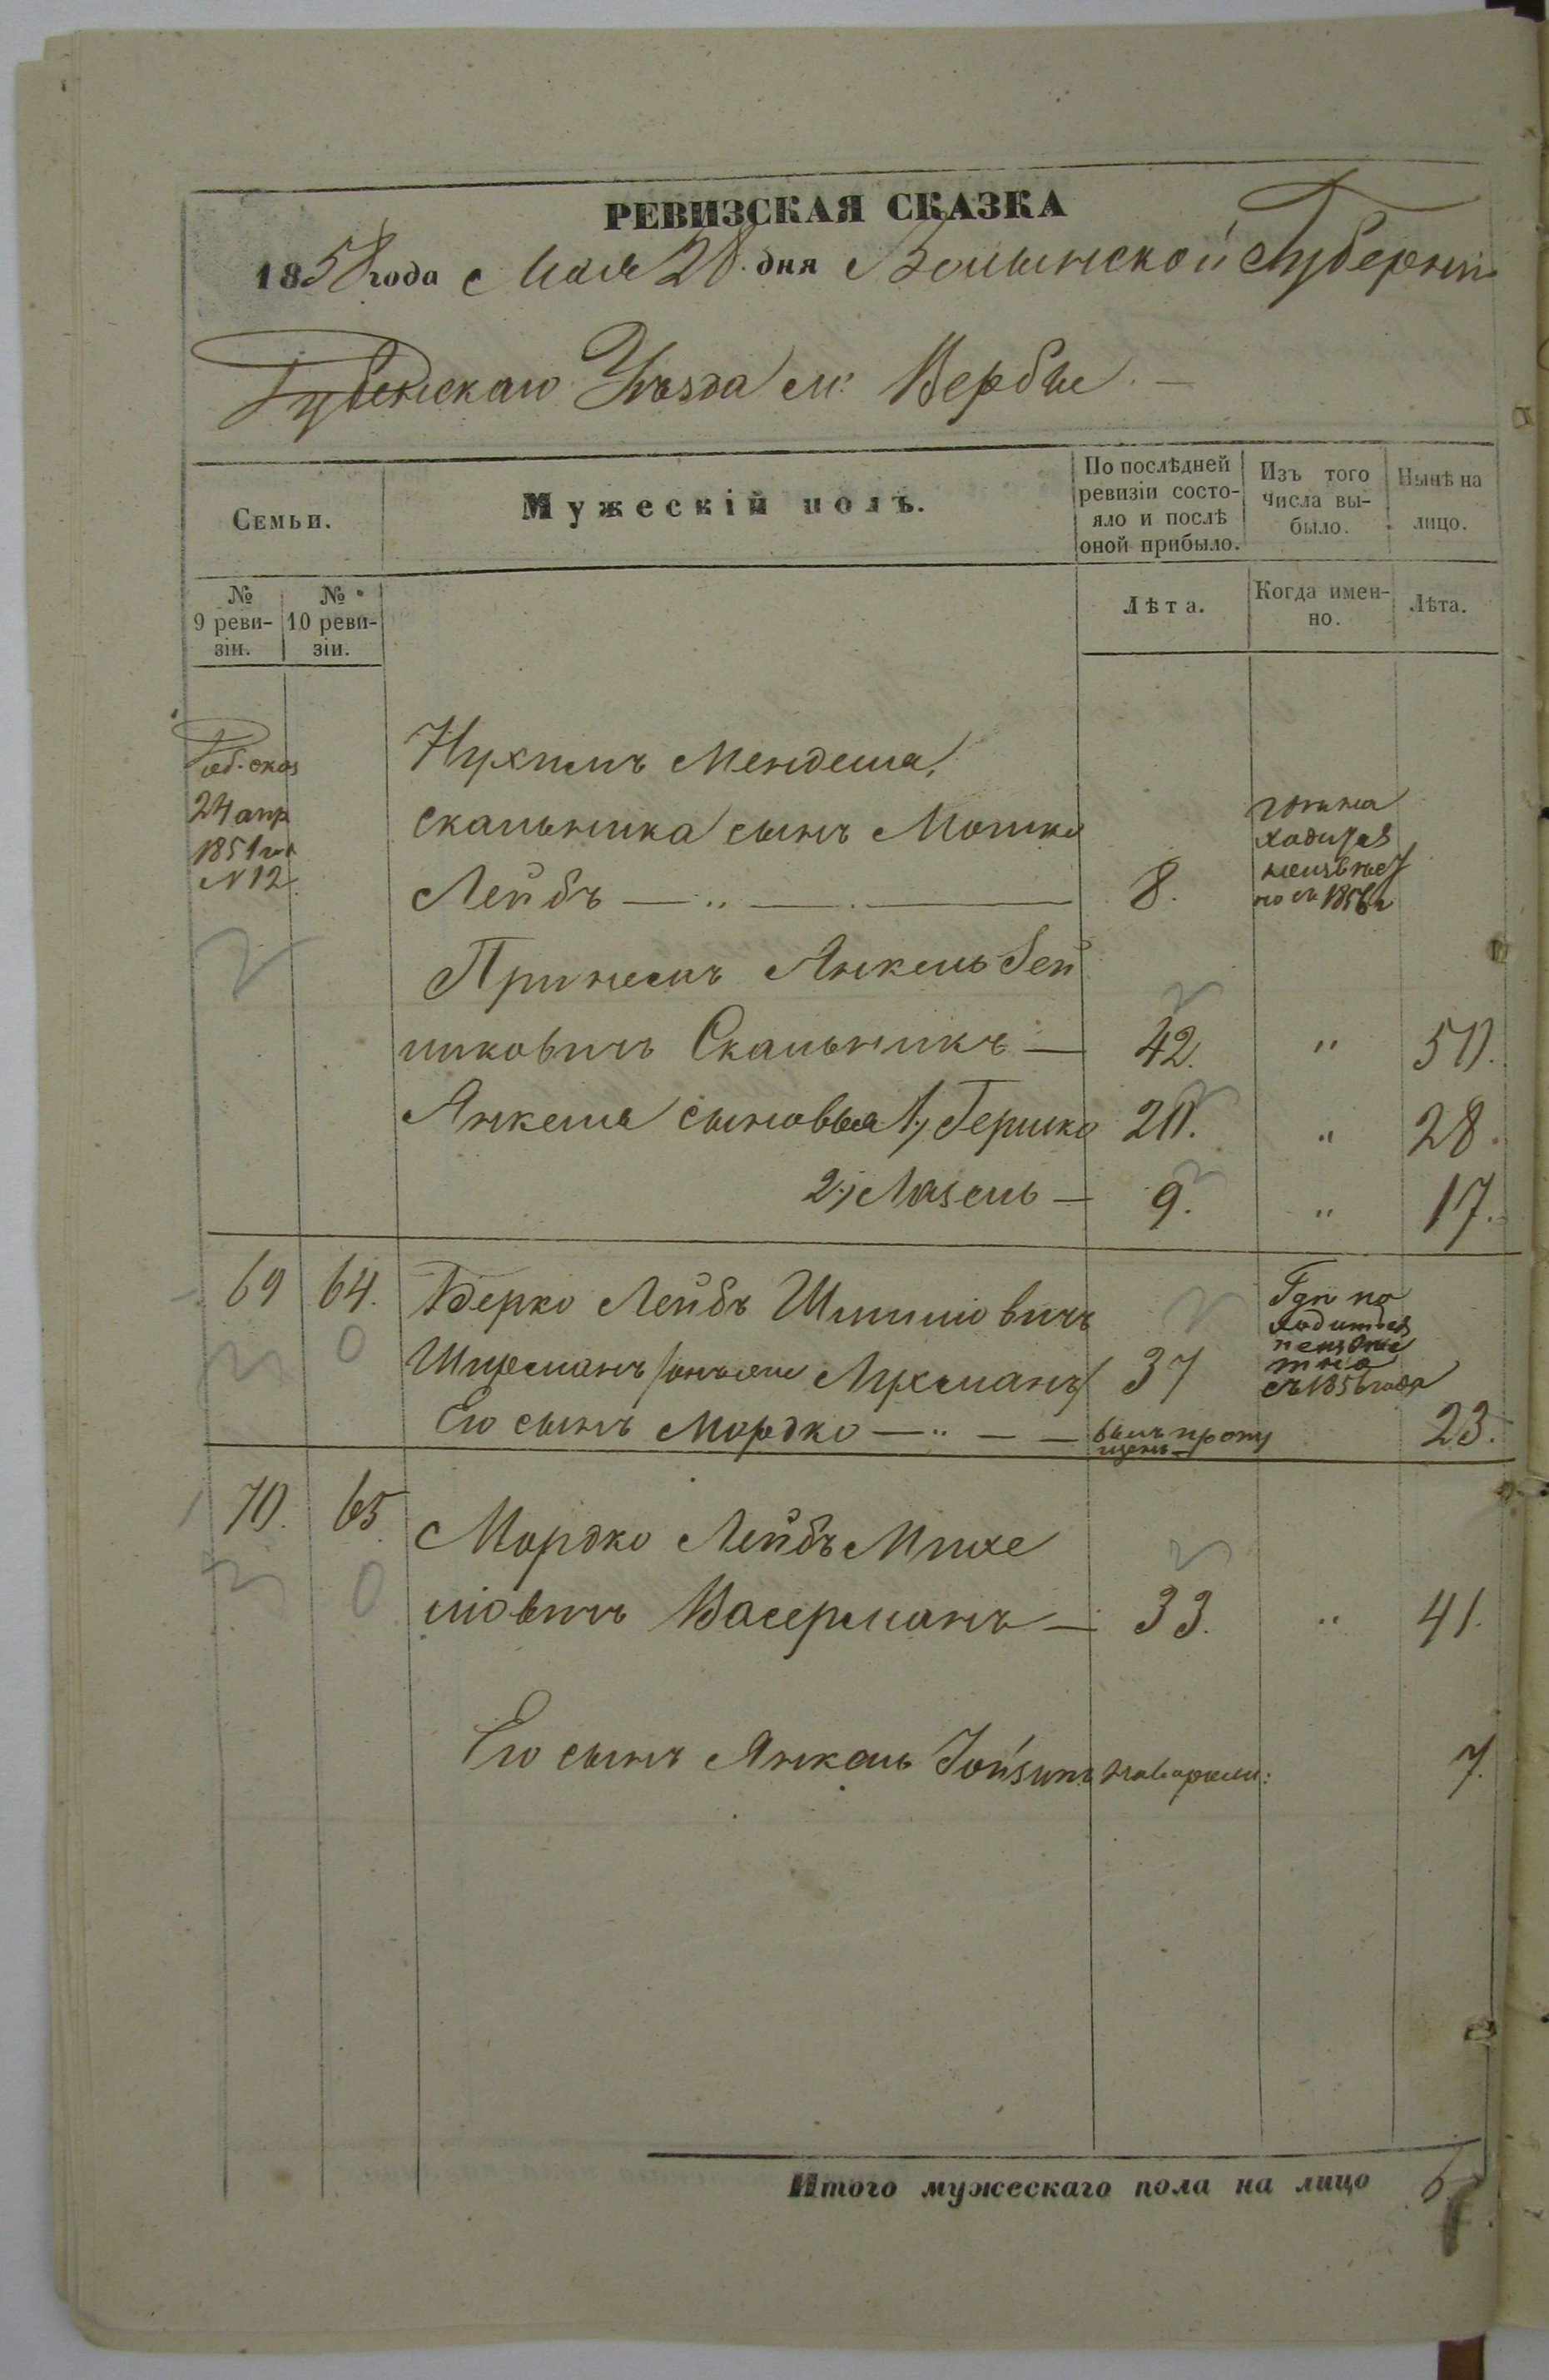 РЕВИЗСКАЯ СКАЗКА
1858 года Мая 28. дня Волынской Губерніи
Дубенскаго Уѣзда м: Вербы. —
Семьи.
Мужескій полъ.
По послѣдней ревизіи состояло и послѣ оной прибыло.
Изъ того числа выбыло.
Нынѣ на лицо.
№ 9 ревизіи.
№ 10 ревизіи.
Лѣта.
Когда именно.
Лѣта.
24 апр
1851
N 12
Нухимъ Менделя,
скальника сынъ Мошко
Лейбъ — „ — . — 8.
1856
Янкель Гец
иковичъ Скальникъ — 42. „ 50.
Янкеля сыновья 1, Гершко 20. „ 28.
2, Лазель — 9. „ 17.
69 64. Берко Лейбъ Шмиловичъ
37
Гдѣ на
ходится
неизвѣс
тно
съ 1856 года
Его сынъ Мордко — „ — — былъ пропу
щенъ 23.
70. 65. Мордко Лейбъ Михе
левичъ Васерманъ — 33. „ 41.
Его сынъ Янкель новорожд: 7.
Итого мужескаго пола на лицо